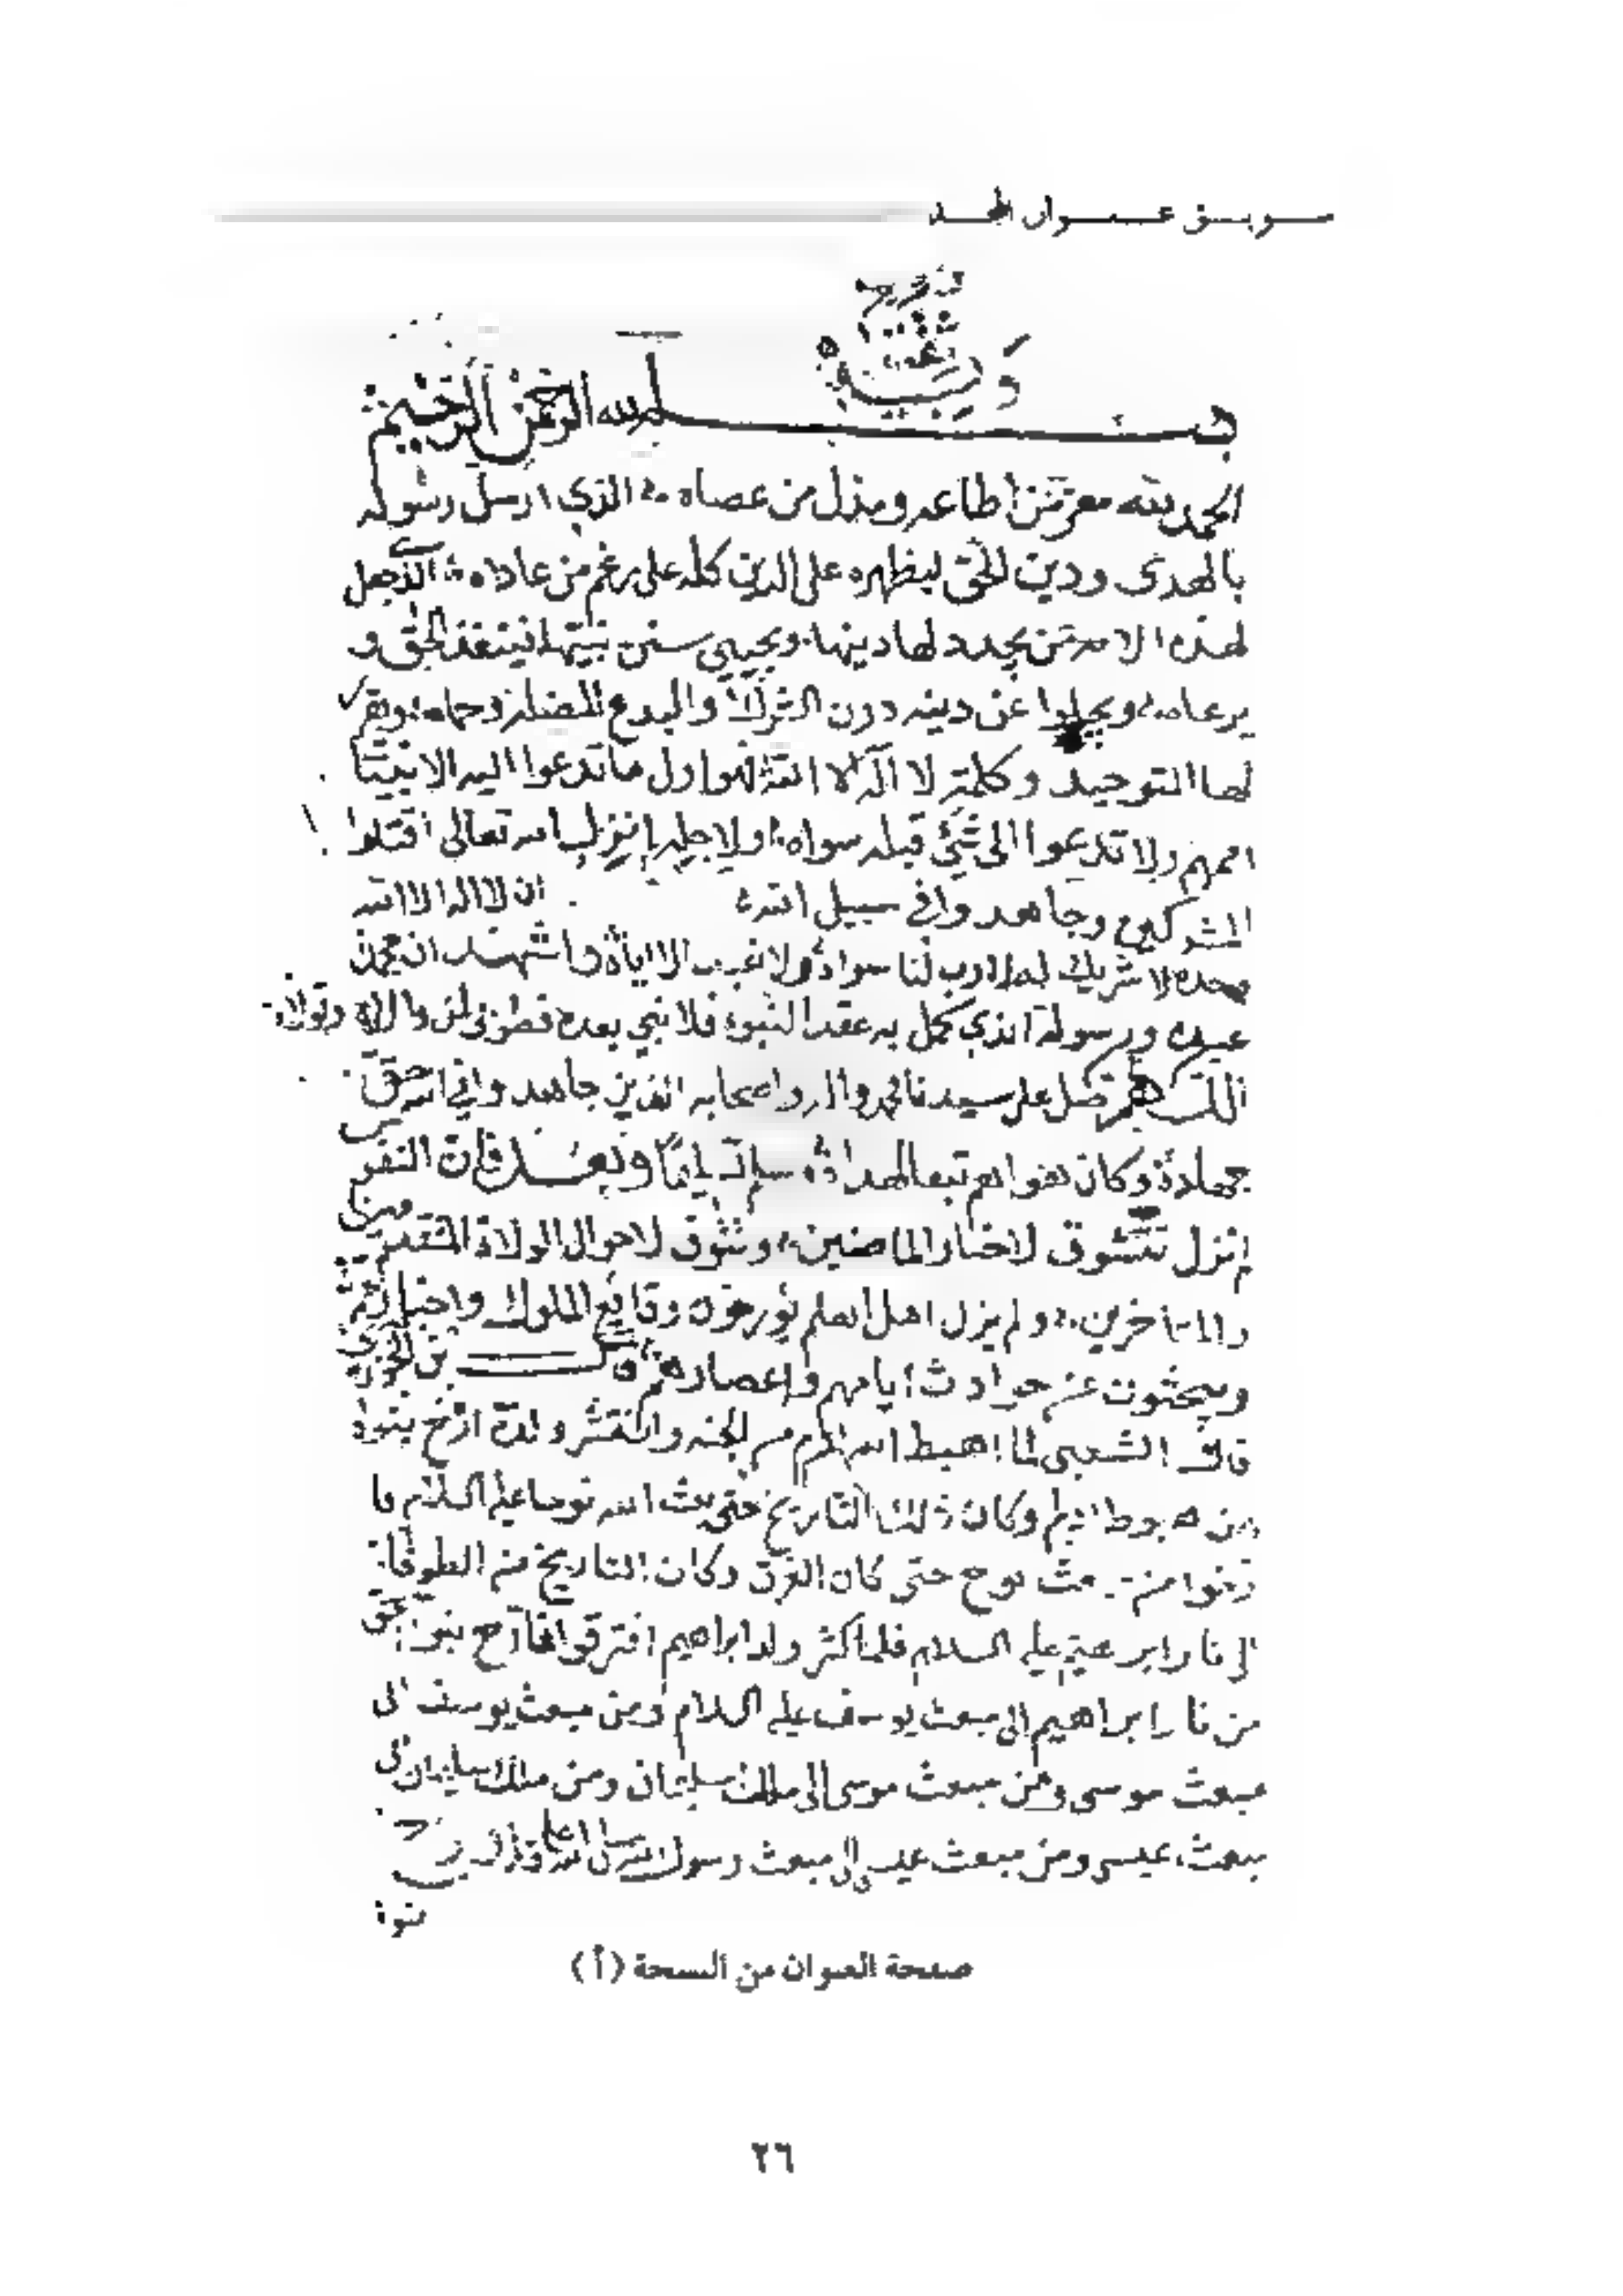 بسم الله الرحمن الرحيم
الحمد لله معز من اطاعه ومذل من عصاه الذي ارسل رسوله
بالهدى ودين الحق ليظهره على الدين كله على رغم من عاداه
لهذه الامة من يجدد لها دينها ويحيي سنن نبيها فينفذ الحق و
يرعاه ويجلوا عن دينه درن الشرك والبدع المضلة وحماه
لها التوحيد وكلمة لا اله الا الله اول ما تدعوا اليه الانبيا
اممهم ولا تدعوا الى شئ قبله سواه ولاجله انزل الله تعالى اقتلوا
المشركين وجاهدوا في سبيل الله ان لا اله الا الله
وحده لا شريك له لا رب لنا سواه ولا نعبد الا اياه واشهد ان محمدا
عبده ورسوله الذي كمل به عقد النبوة فلا نبي بعده فطوبى لمن والاه وتولاه
اللهم صل على سيدنا محمد واله واصحابه الذين جاهدوا في الله حق
جهاده وكان هواهم تبعا لهداه وسلم تسليما وبعد فان النفوس
لم تزل تتشوق لاخبار الماضين وتتشوق لاحوال الولاة المتقدمين
والمتأخرين ولم يزل اهل العلم يؤرخون وقايع الملوك واخبارهم
ويبحثون عن حوادث ايامهم واعصارهم بن الجوزي
قال الشعبي لما اهبط الله ادم من الجنة وانتشر ولده ارخ بنوه
من هبوط ادم وكان ذلك التاريخ حتى بعث الله نوحا عليه السلام فا
رخوا من مبعث نوح حتى كان الغرق وكان التاريخ من الطوفان
الى نار ابرهيم عليه السلام فلما كثر ولد ابراهيم افترقوا فارخ بنو اسحق
من نار ابراهيم الى مبعث يوسف عليه السلام ومن مبعث يوسف الى
مبعث موسى ومن مبعث موسى الى ملك سليمان ومن ملك سليمان الى
مبعث عيسى ومن مبعث عيسى الى مبعث رسول الله صلى الله عليه
بنو
صفحة العنوان من النسخة (أ)
٢٦